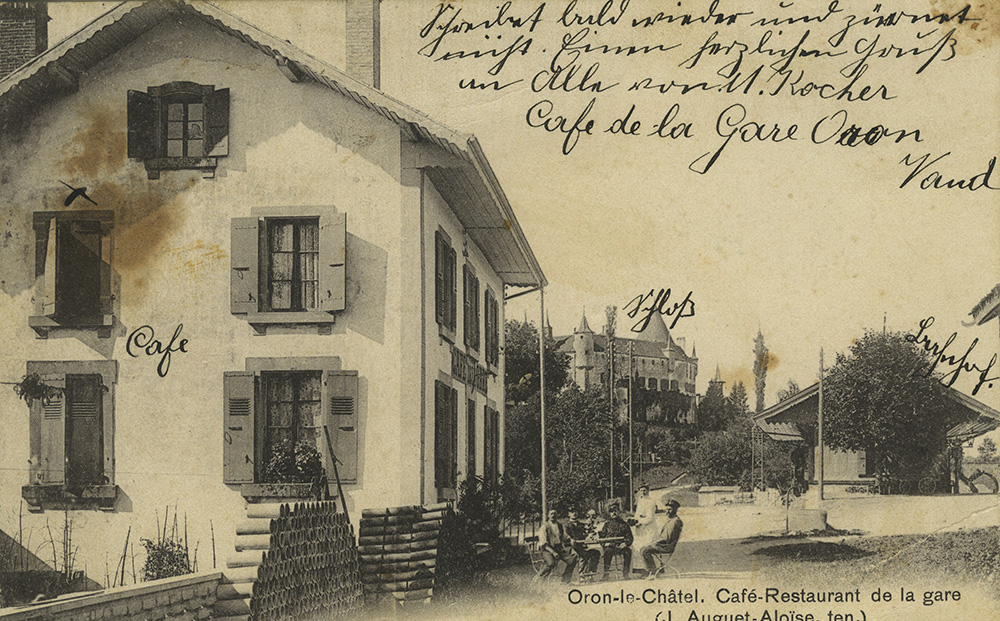 Schreibet bald wieder und zürnet
nicht. Einen herzlichen Gruß
an Alle von U. Kocher
Cafe de la Gare Oron
Vaud
Schloß
Bahnhof.
Cafe
Oron-le-Châtel. Café-Restaurant de la gare
(J. Auguet-Aloïse, ten.)